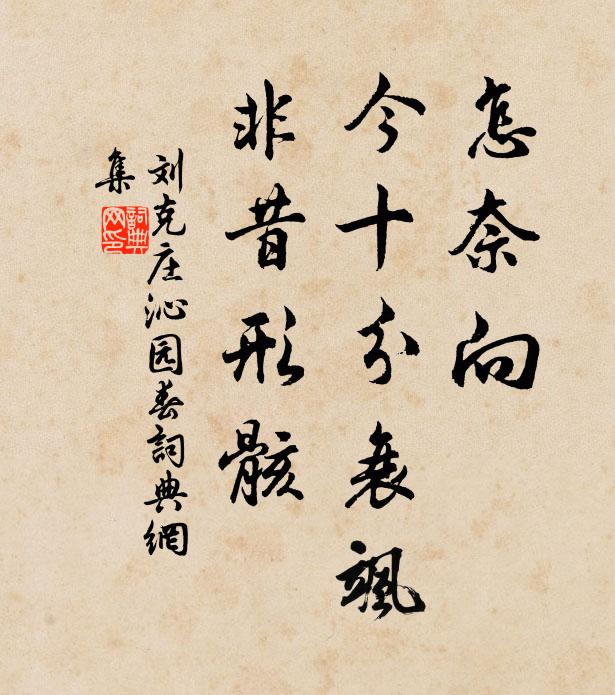 怎奈向
今十分衰飒
非昔形骸
刘克庄沁园春詞典網
集
詞典网印